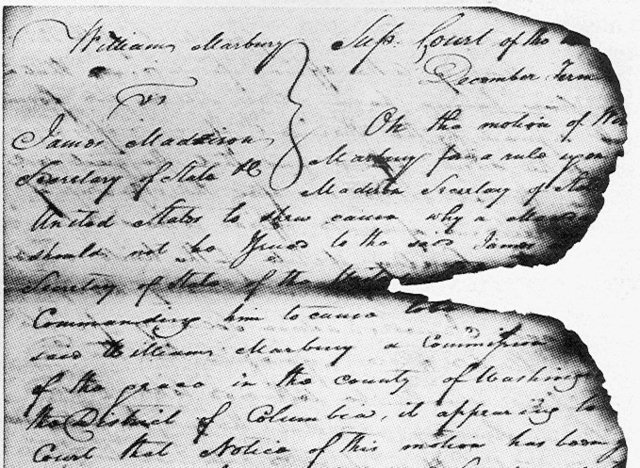 William Marbury Sup. Court of the
vs December Term
James Madison On the motion of
Secretary of State Marbury for a rule upon
Madison Secretary of State
United States to shew cause why a
should not be Issued to the said James
Secretary of State of the
Commanding him to cause
said William Marbury a Commission
of the peace in the county of Washing
the District of Columbia, it appearing to
Court that Notice of this motion has been